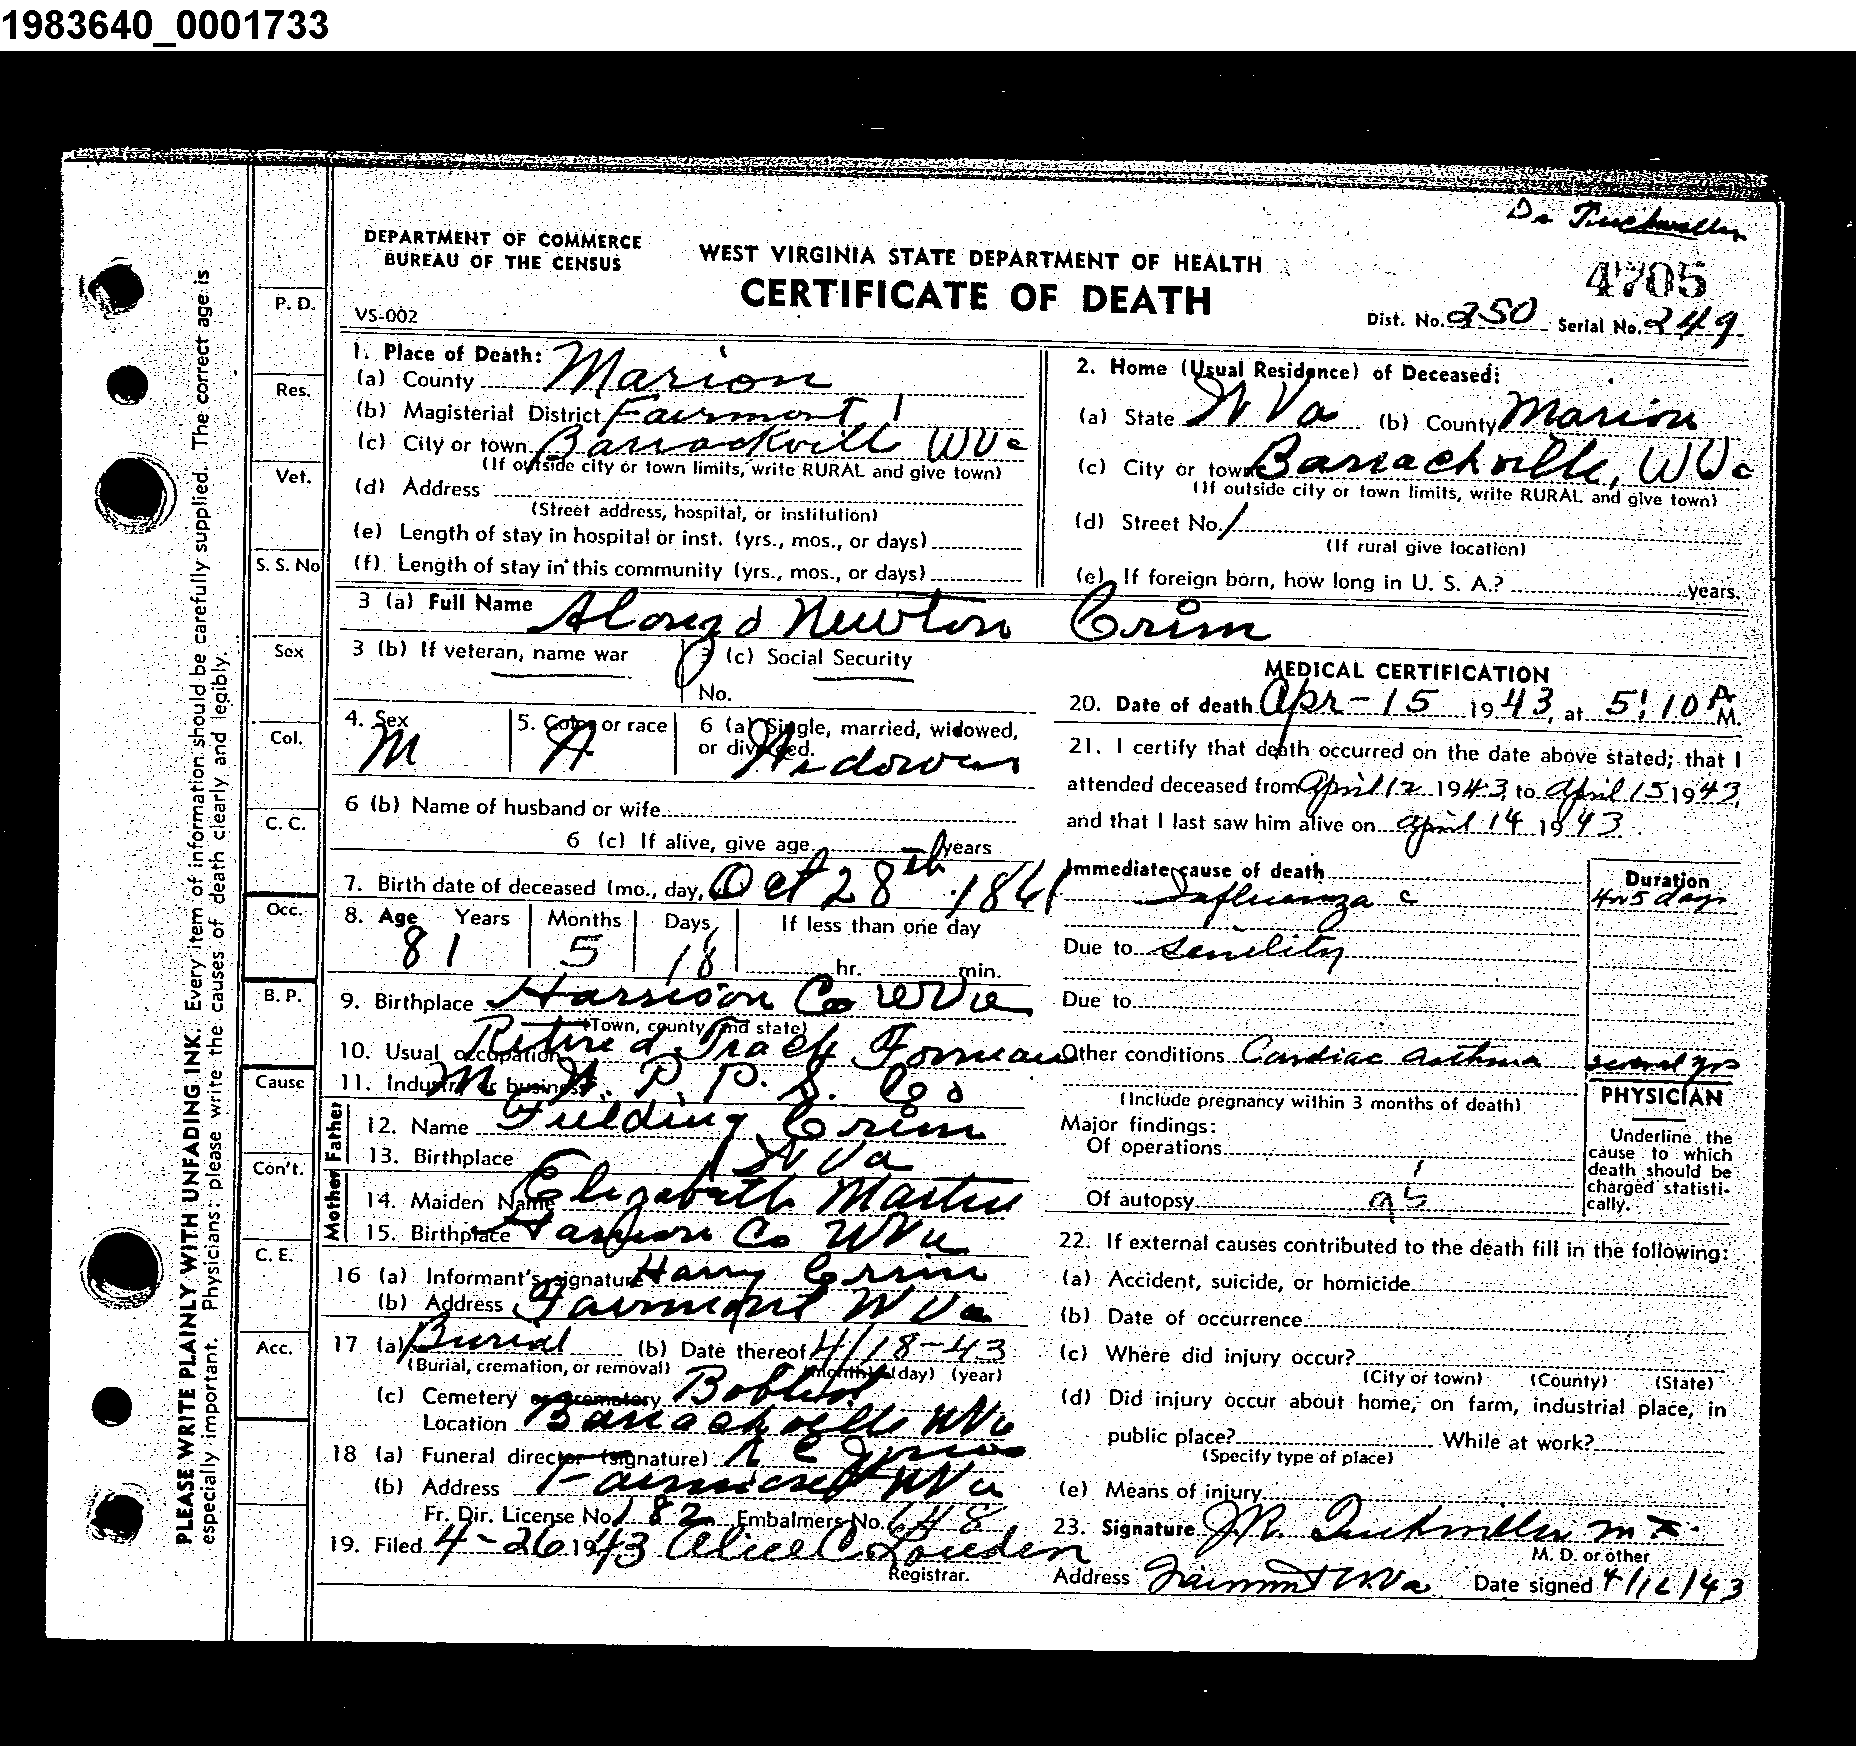 1983640_0001733
Dr Tuckwiller
DEPARTMENT OF COMMERCE
BUREAU OF THE CENSUS
WEST VIRGINIA STATE DEPARTMENT OF HEALTH
CERTIFICATE OF DEATH
4705
VS-002
Dist. No. 250 Serial No. 249
PLEASE WRITE PLAINLY WITH UNFADING INK. Every item of information should be carefully supplied. The correct age is
especially important. Physicians: please write the causes of death clearly and legibly.
P. D.
Res.
Vet.
S. S. No
Sex
Col.
C. C.
Occ.
B. P.
Cause
Con't.
C. E.
Acc.
1. Place of Death:
(a) County Marion
(b) Magisterial District Fairmont 1
(c) City or town Barrackvill WVa
(If outside city or town limits, write RURAL and give town)
(d) Address
(Street address, hospital, or institution)
(e) Length of stay in hospital or inst. (yrs., mos., or days)
(f) Length of stay in this community (yrs., mos., or days)
2. Home (Usual Residence) of Deceased:
(a) State W Va (b) County Marion
(c) City or town Barrackville, WVa
(If outside city or town limits, write RURAL and give town)
(d) Street No.
(If rural give location)
(e) If foreign born, how long in U. S. A.? years.
3 (a) Full Name Alonzo Newton Crim
3 (b) If veteran, name war
3 (c) Social Security
No.
4. Sex M
5. Color or race W
6 (a) Single, married, widowed,
or divorced. Widower
6 (b) Name of husband or wife
6 (c) If alive, give age years
7. Birth date of deceased (mo., day, Oct 28th 1861
8. Age Years Months Days If less than one day
81 5 18 hr. min.
9. Birthplace Harrison Co W Va
(Town, county and state)
10. Usual occupation Retired Track Forman
11. Industry or business M W. P. P. S. Co
Father
12. Name Fielding Crim
13. Birthplace W Va
Mother
14. Maiden Name Elizabeth Martin
15. Birthplace Harrison Co WVa
16 (a) Informant's signature Harry Crim
(b) Address Fairmont W Va
17 (a) Burial (b) Date thereof 4/18-43
(Burial, cremation, or removal) (month) (day) (year)
(c) Cemetery or crematory
Location Barrackville WVa
18 (a) Funeral director (signature)
(b) Address Fairmont WVa
Fr. Dir. License No. 182 Embalmers No. 648
19. Filed 4-26 1943 Alice C. Louden
Registrar.
MEDICAL CERTIFICATION
20. Date of death Apr-15 1943, at 5:10 A M.
21. I certify that death occurred on the date above stated; that I
attended deceased from April 12 1943, to April 15 1943,
and that I last saw him alive on April 14 1943
Immediate cause of death
Influenza c
Duration
4 or 5 days
Due to senility
Due to
Other conditions Cardiac asthma several yrs
(Include pregnancy within 3 months of death)
Major findings:
Of operations
Of autopsy
PHYSICIAN
Underline the
cause to which
death should be
charged statisti-
cally.
22. If external causes contributed to the death fill in the following:
(a) Accident, suicide, or homicide
(b) Date of occurrence
(c) Where did injury occur?
(City or town) (County) (State)
(d) Did injury occur about home, on farm, industrial place, in
public place? While at work?
(Specify type of place)
(e) Means of injury
23. Signature J.R. Tuckwiller M D.
M. D. or other
Address Fairmont W.Va Date signed 4/16/43